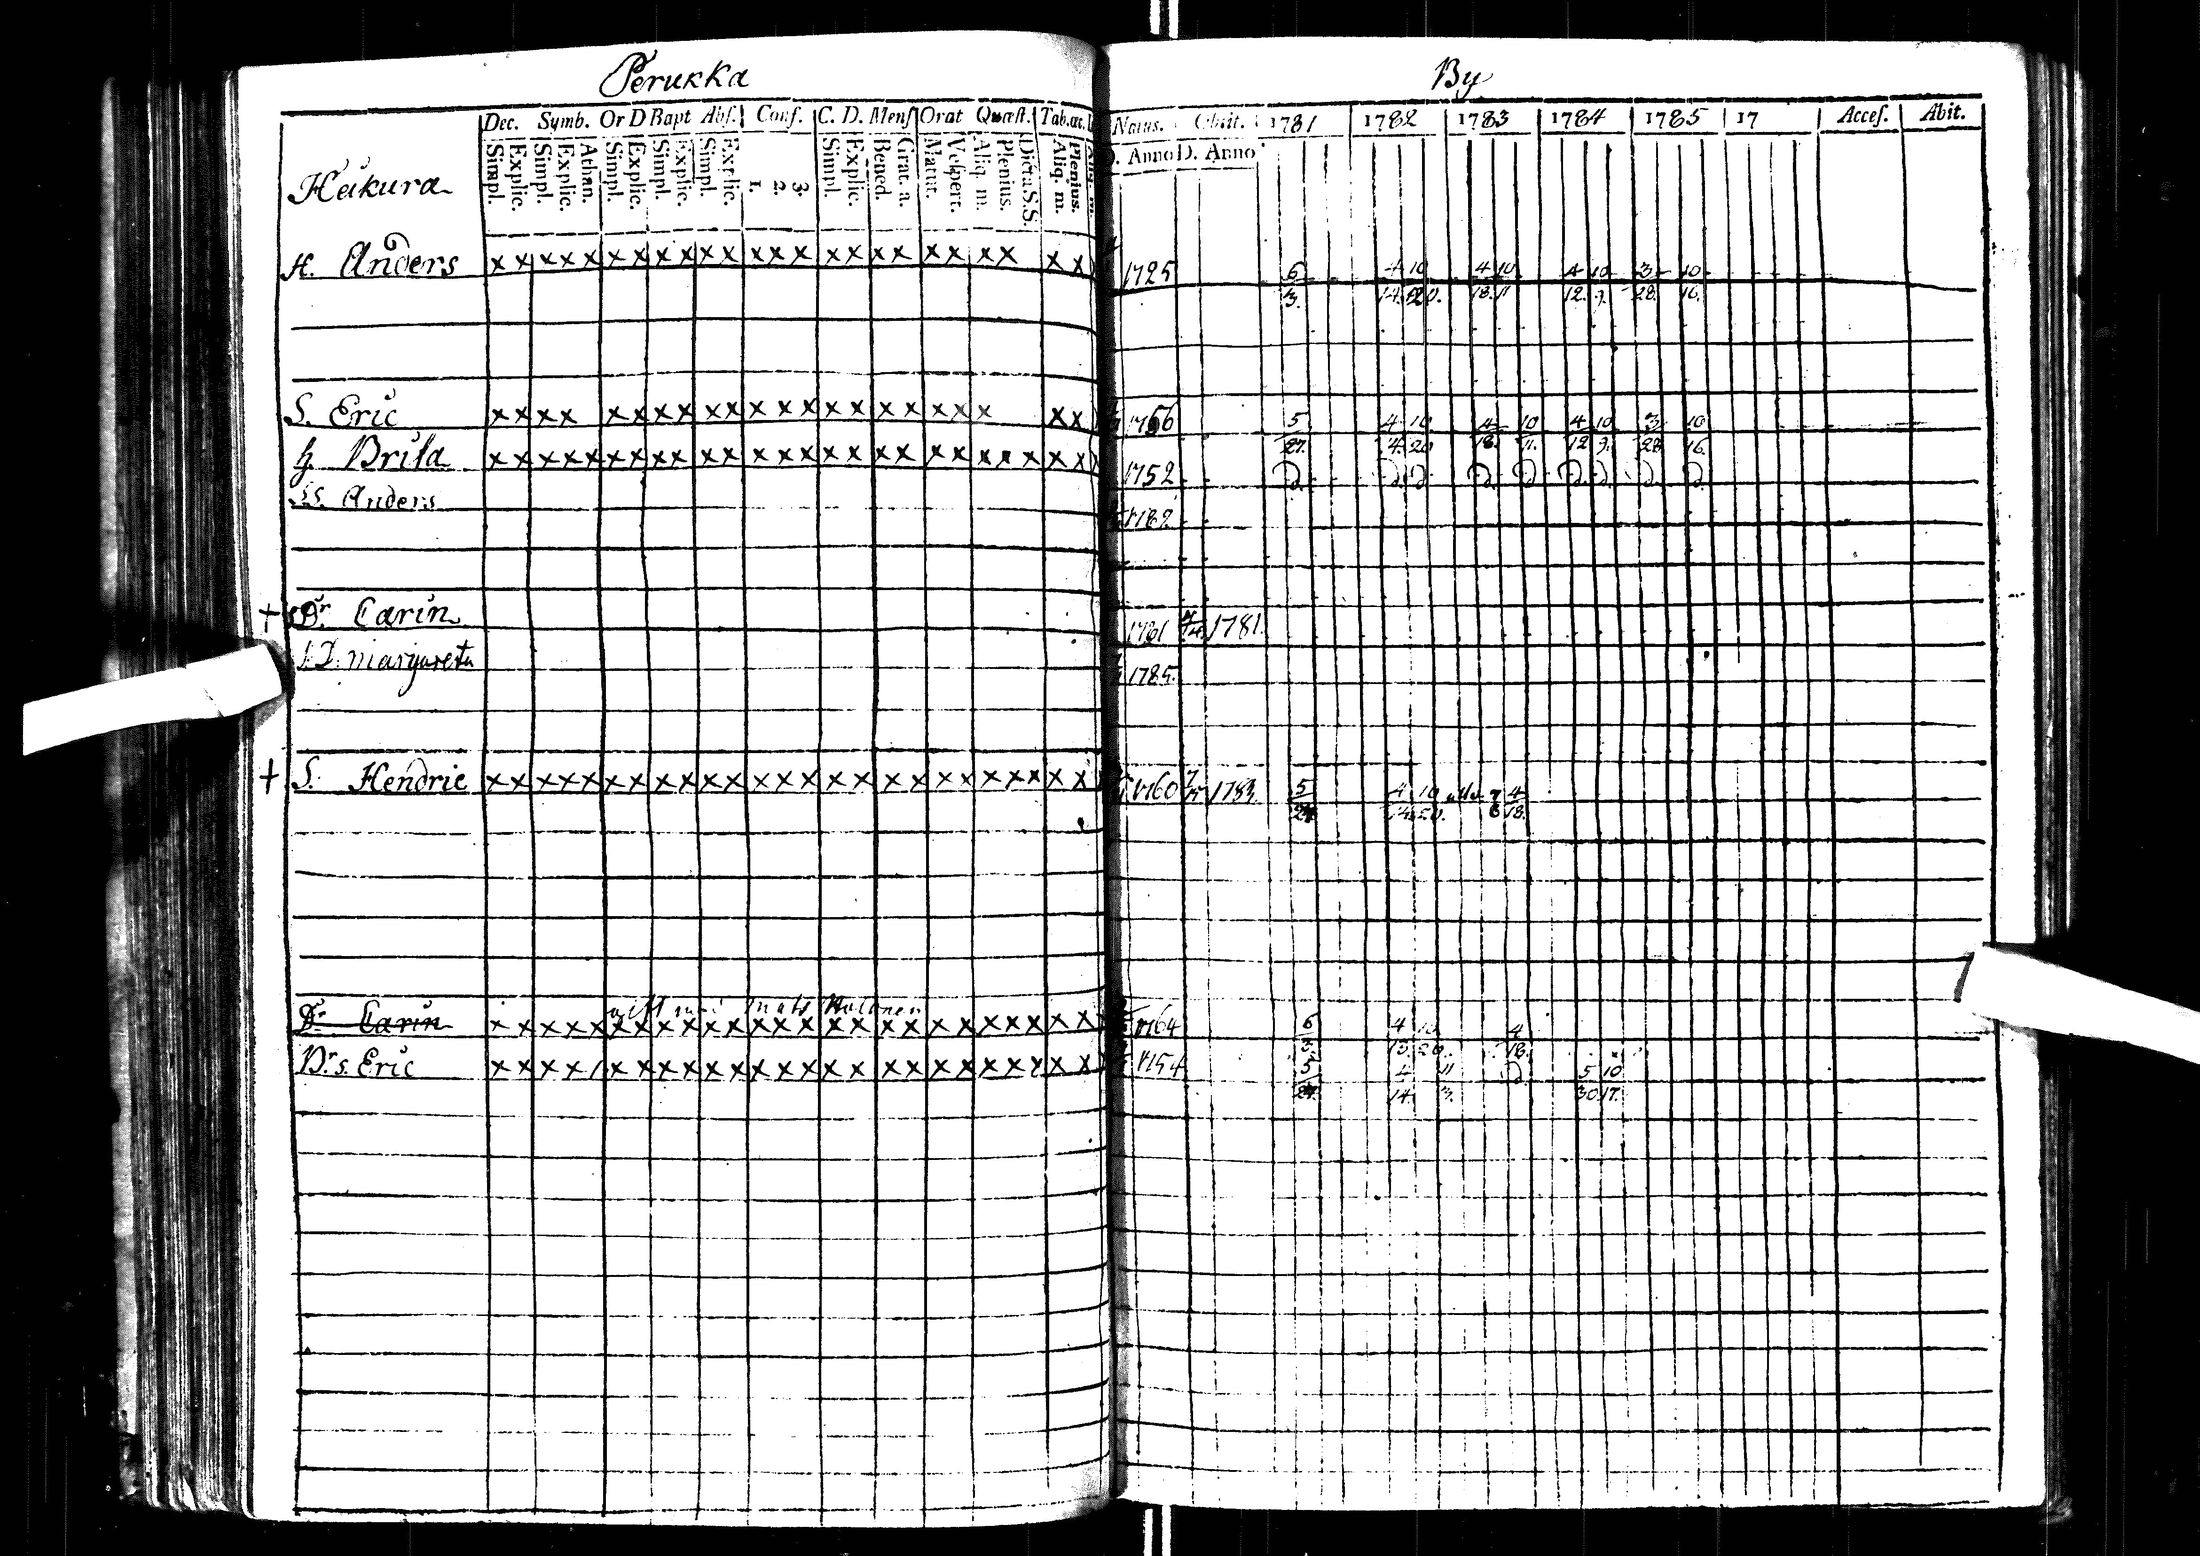 Perukka By
Dec. Symb. Or D Bapt Abs. Conf. C. D. Mens Orat Quæst. Tab. Natus. Obiit. 1781 1782 1783 1784 1785 17 Acces. Abit.
Simpl. Explic. Simpl. Explic. Athan. Simpl. Explic. Simpl. Explic. Simpl. Explic. 1. 2. 3. Simpl. Explic. Bened. Grat. a. Matut. Vespert. Aliq. m. Plenius. Dicta.S.S. Aliq. m. Plenius. D. Anno D. Anno
Heikura
H. Anders x x x x x x x x x x x x x x x x x x x x x x x x 1725 6 4 10 4 10 4 10 3 10
3. 14. 20. 18. 11 12. 9. 28. 16.
S. Eric x x x x x x x x x x x x x x x x x x x x x x x 1766 5 4 10 4 10 4 10 3 10
27. 4. 20 18. 11. 12 9. 28 16.
h Brita x x x x x x x x x x x x x x x x x x x x x x x x x 1752 D D D D D D D D D
SS. Anders 1782
+ Dr Carin 1781 1781.
D. margareta 1785.
+ S. Hendric x x x x x x x x x x x x x x x x x x x x x x x x x 1760 1783. 5 4 10 7 4
24 14. 20. 8 18.
gift med Mats
Dr Carin x x x x x x x x x x x x x x x x x x x x x x x x x 1764 6 4 10 4
3. 13. 20. 18.
Dr s. Eric x x x x x x x x x x x x x x x x x x x x x x x x 1754 5 4 11 D 5 10
27. 14. 3. 30. 17.